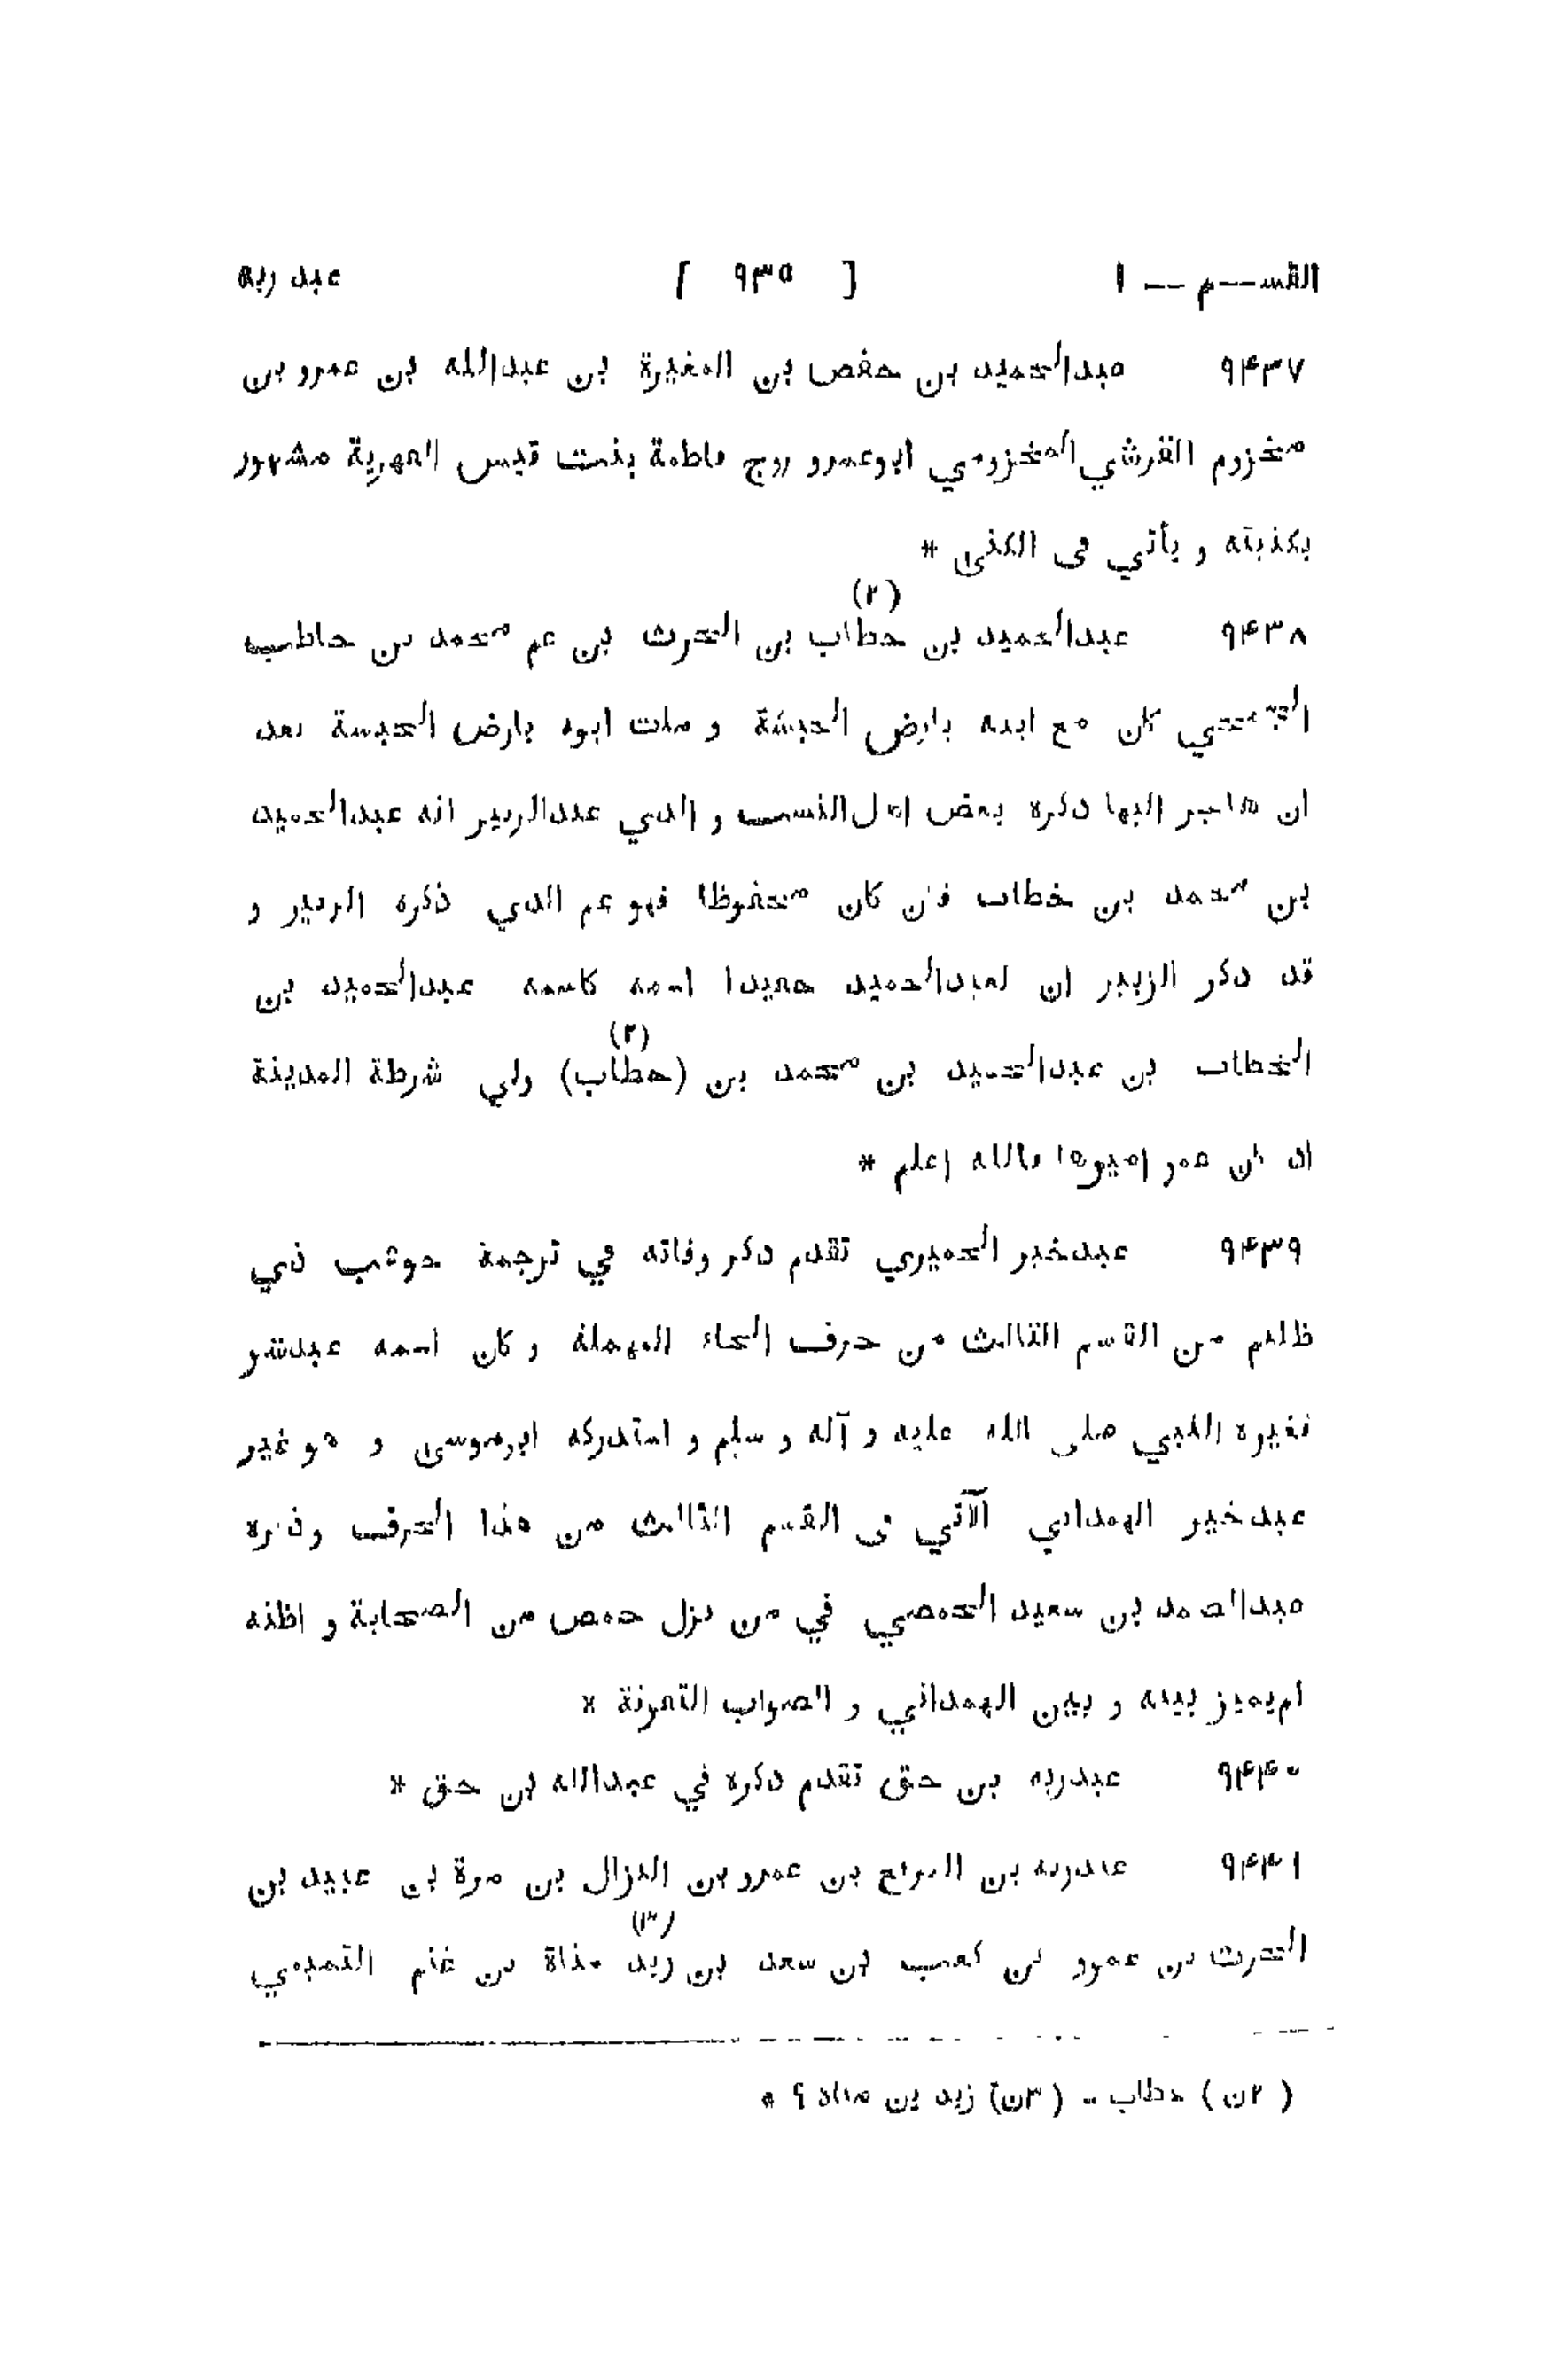 القســم -- ١ [ ٩٣٥ ] عبد ربه
٩٤٣٧ عبدالحميد بن حفص بن المغيرة بن عبدالله بن عمرو بن
مخزوم القرشي المخزومي ابوعمرو زوج فاطمة بنت قيس الفهرية مشهور
بكنيته و يأتي فى الكنى *
٩٤٣٨ عبدالحميد بن خطاب (٢) بن الحرث بن عم محمد بن حاطب
الجمحي كان مع ابيه بارض الحبشة و مات ابوه بارض الحبشة بعد
ان هاجر اليها ذكره بعض اهل النسب و الذي عندالزبير انه عبدالحميد
بن محمد بن خطاب فان كان محفوظا فهو عم الذي ذكره الزبير و
قد ذكر الزبير ان لعبدالحميد حفيدا اسمه كاسمه عبدالحميد بن
الخطاب بن عبدالحميد بن محمد بن (حطاب) (٢) ولي شرطة المدينة
ان عمر اميرها فالله اعلم *
٩٤٣٩ عبدخير الحميري تقدم ذكر وفاته في ترجمة حوشب ذي
ظليم من القسم الثالث من حرف الحاء المهملة و كان اسمه عبدشر
فغيره النبي صلى الله عليه و آله و سلم و استدركه ابوموسى و هو غير
عبدخير الهمداني الآتي فى القسم الثالث من هذا الحرف وذكره
عبدالصمد بن سعيد الحمصي في من نزل حمص من الصحابة و اظنه
لم يميز بينه و بين الهمداني و الصواب التفرقة *
٩٤٤٠ عبدربه بن حق تقدم ذكره في عبدالله بن حق *
٩٤٤١ عبدربه بن المرقع بن عمرو بن النزال بن مرة بن عبيد بن
الحرث بن عمرو بن كعب بن سعد بن زيد (٣) مناة بن غنم التميمي
( ٢ن ) حطاب - ( ٣ن) زيد بن مناة ؟ *